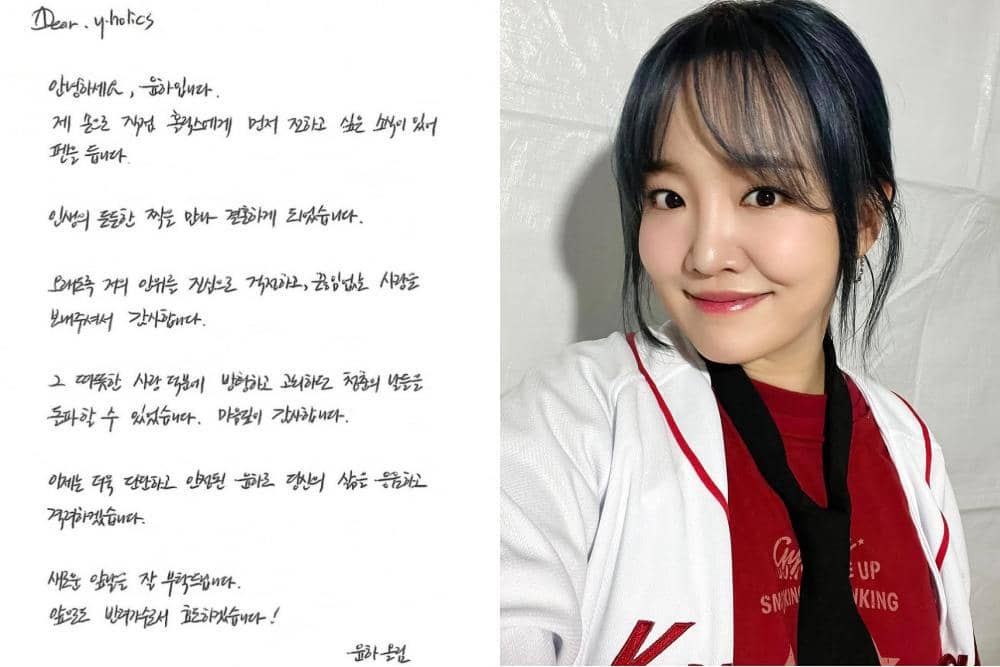 Dear. y.holics
안녕하세요, 윤하입니다.
제 손으로 직접 홀릭스에게 먼저 전하고 싶은 소식이 있어
펜을 듭니다.
인생의 든든한 짝을 만나 결혼하게 되었습니다.
오래도록 저의 안위를 진심으로 걱정하고, 끊임없는 사랑을
보내주셔서 감사합니다.
그 따뜻한 사랑 덕분에 방황하고 고뇌하던 청춘의 날들을
돌파할 수 있었습니다. 마음깊이 감사합니다.
이제는 더욱 단단하고 안정된 윤하로 당신의 삶을 응원하고
격려하겠습니다.
새로운 앞날을 잘 부탁드립니다.
앞으로도 반려가수로서 효도하겠습니다!
윤하 올림
UP